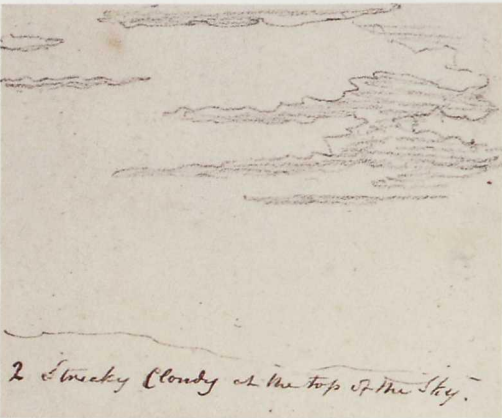 2 Streaky Clouds at the top of the Sky.